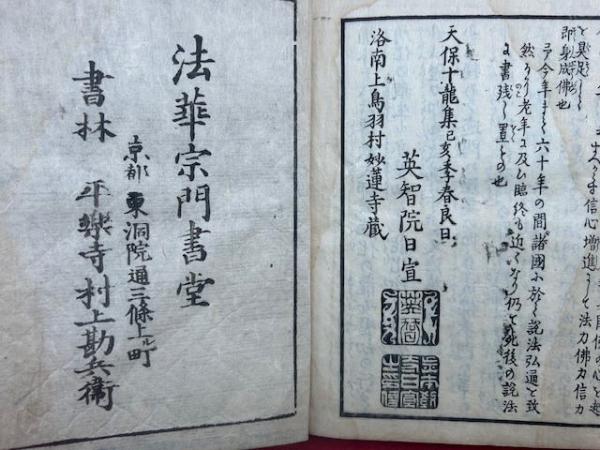 信心増進して法力佛力信力
と具足して
即身成佛也
予今年まで六十年の間諸國に於て説法弘通を致
然るに老年に及ひ臨終も近くなり仍て死後の説法
に書残し置もの也
天保十龍集己亥季春良日
英智院日宣
洛南上鳥羽村妙蓮寺蔵
法華宗門書堂
京都東洞院通三條上ル町
書林 平樂寺村上勘兵衛